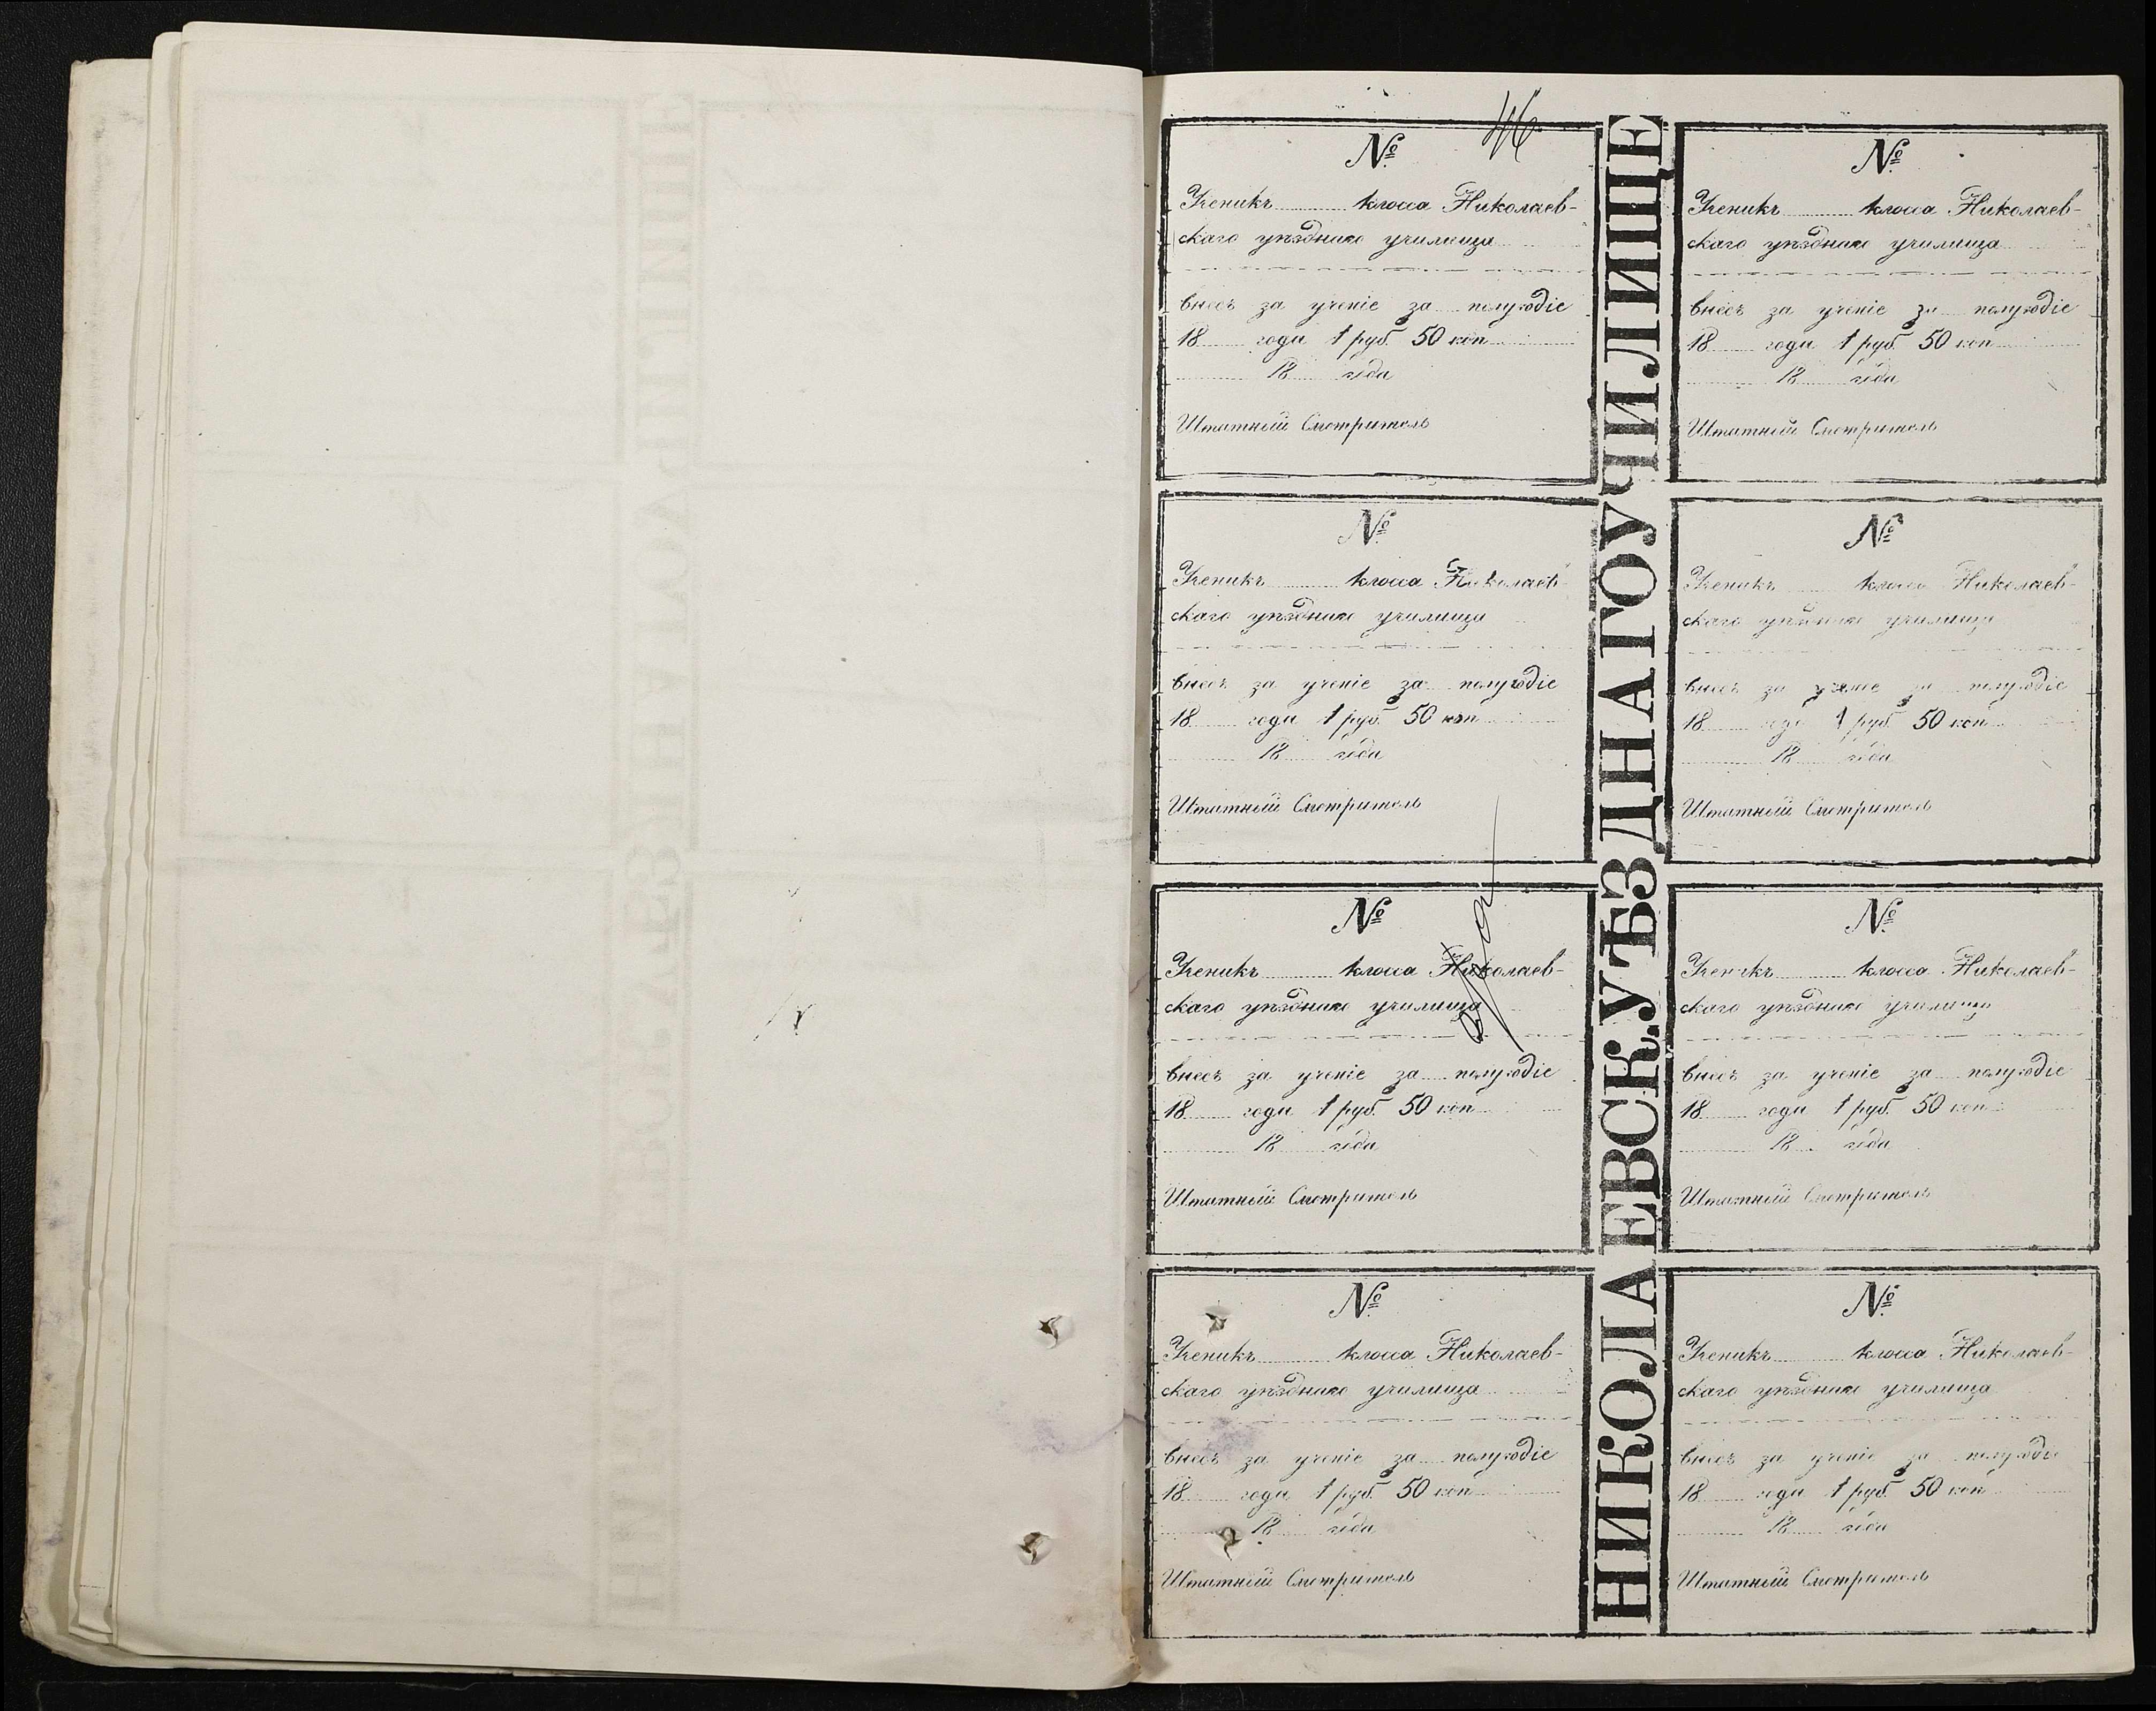 46
№
Ученикъ класса Николаев-
скаго уѣзднаго училища
внесъ за ученіе за полугодіе
18 года 1 руб. 50 коп
18 года
Штатный Смотритель
№
Ученикъ класса Николаев-
скаго уѣзднаго училища
внесъ за ученіе за полугодіе
18 года 1 руб. 50 коп
18 года
Штатный Смотритель
№
Ученикъ класса Николаев-
скаго уѣзднаго училища
внесъ за ученіе за полугодіе
18 года 1 руб. 50 коп
18 года
Штатный Смотритель
№
Ученикъ класса Николаев-
скаго уѣзднаго училища
внесъ за ученіе за полугодіе
18 года 1 руб. 50 коп
18 года
Штатный Смотритель
НИКОЛАЕВСК. УѢЗДНАГО УЧИЛИЩЕ
№
Ученикъ класса Николаев-
скаго уѣзднаго училища
внесъ за ученіе за полугодіе
18 года 1 руб. 50 коп
18 года
Штатный Смотритель
№
Ученикъ класса Николаев-
скаго уѣзднаго училища
внесъ за ученіе за полугодіе
18 года 1 руб. 50 коп
18 года
Штатный Смотритель
№
Ученикъ класса Николаев-
скаго уѣзднаго училища
внесъ за ученіе за полугодіе
18 года 1 руб. 50 коп
18 года
Штатный Смотритель
№
Ученикъ класса Николаев-
скаго уѣзднаго училища
внесъ за ученіе за полугодіе
18 года 1 руб. 50 коп
18 года
Штатный Смотритель